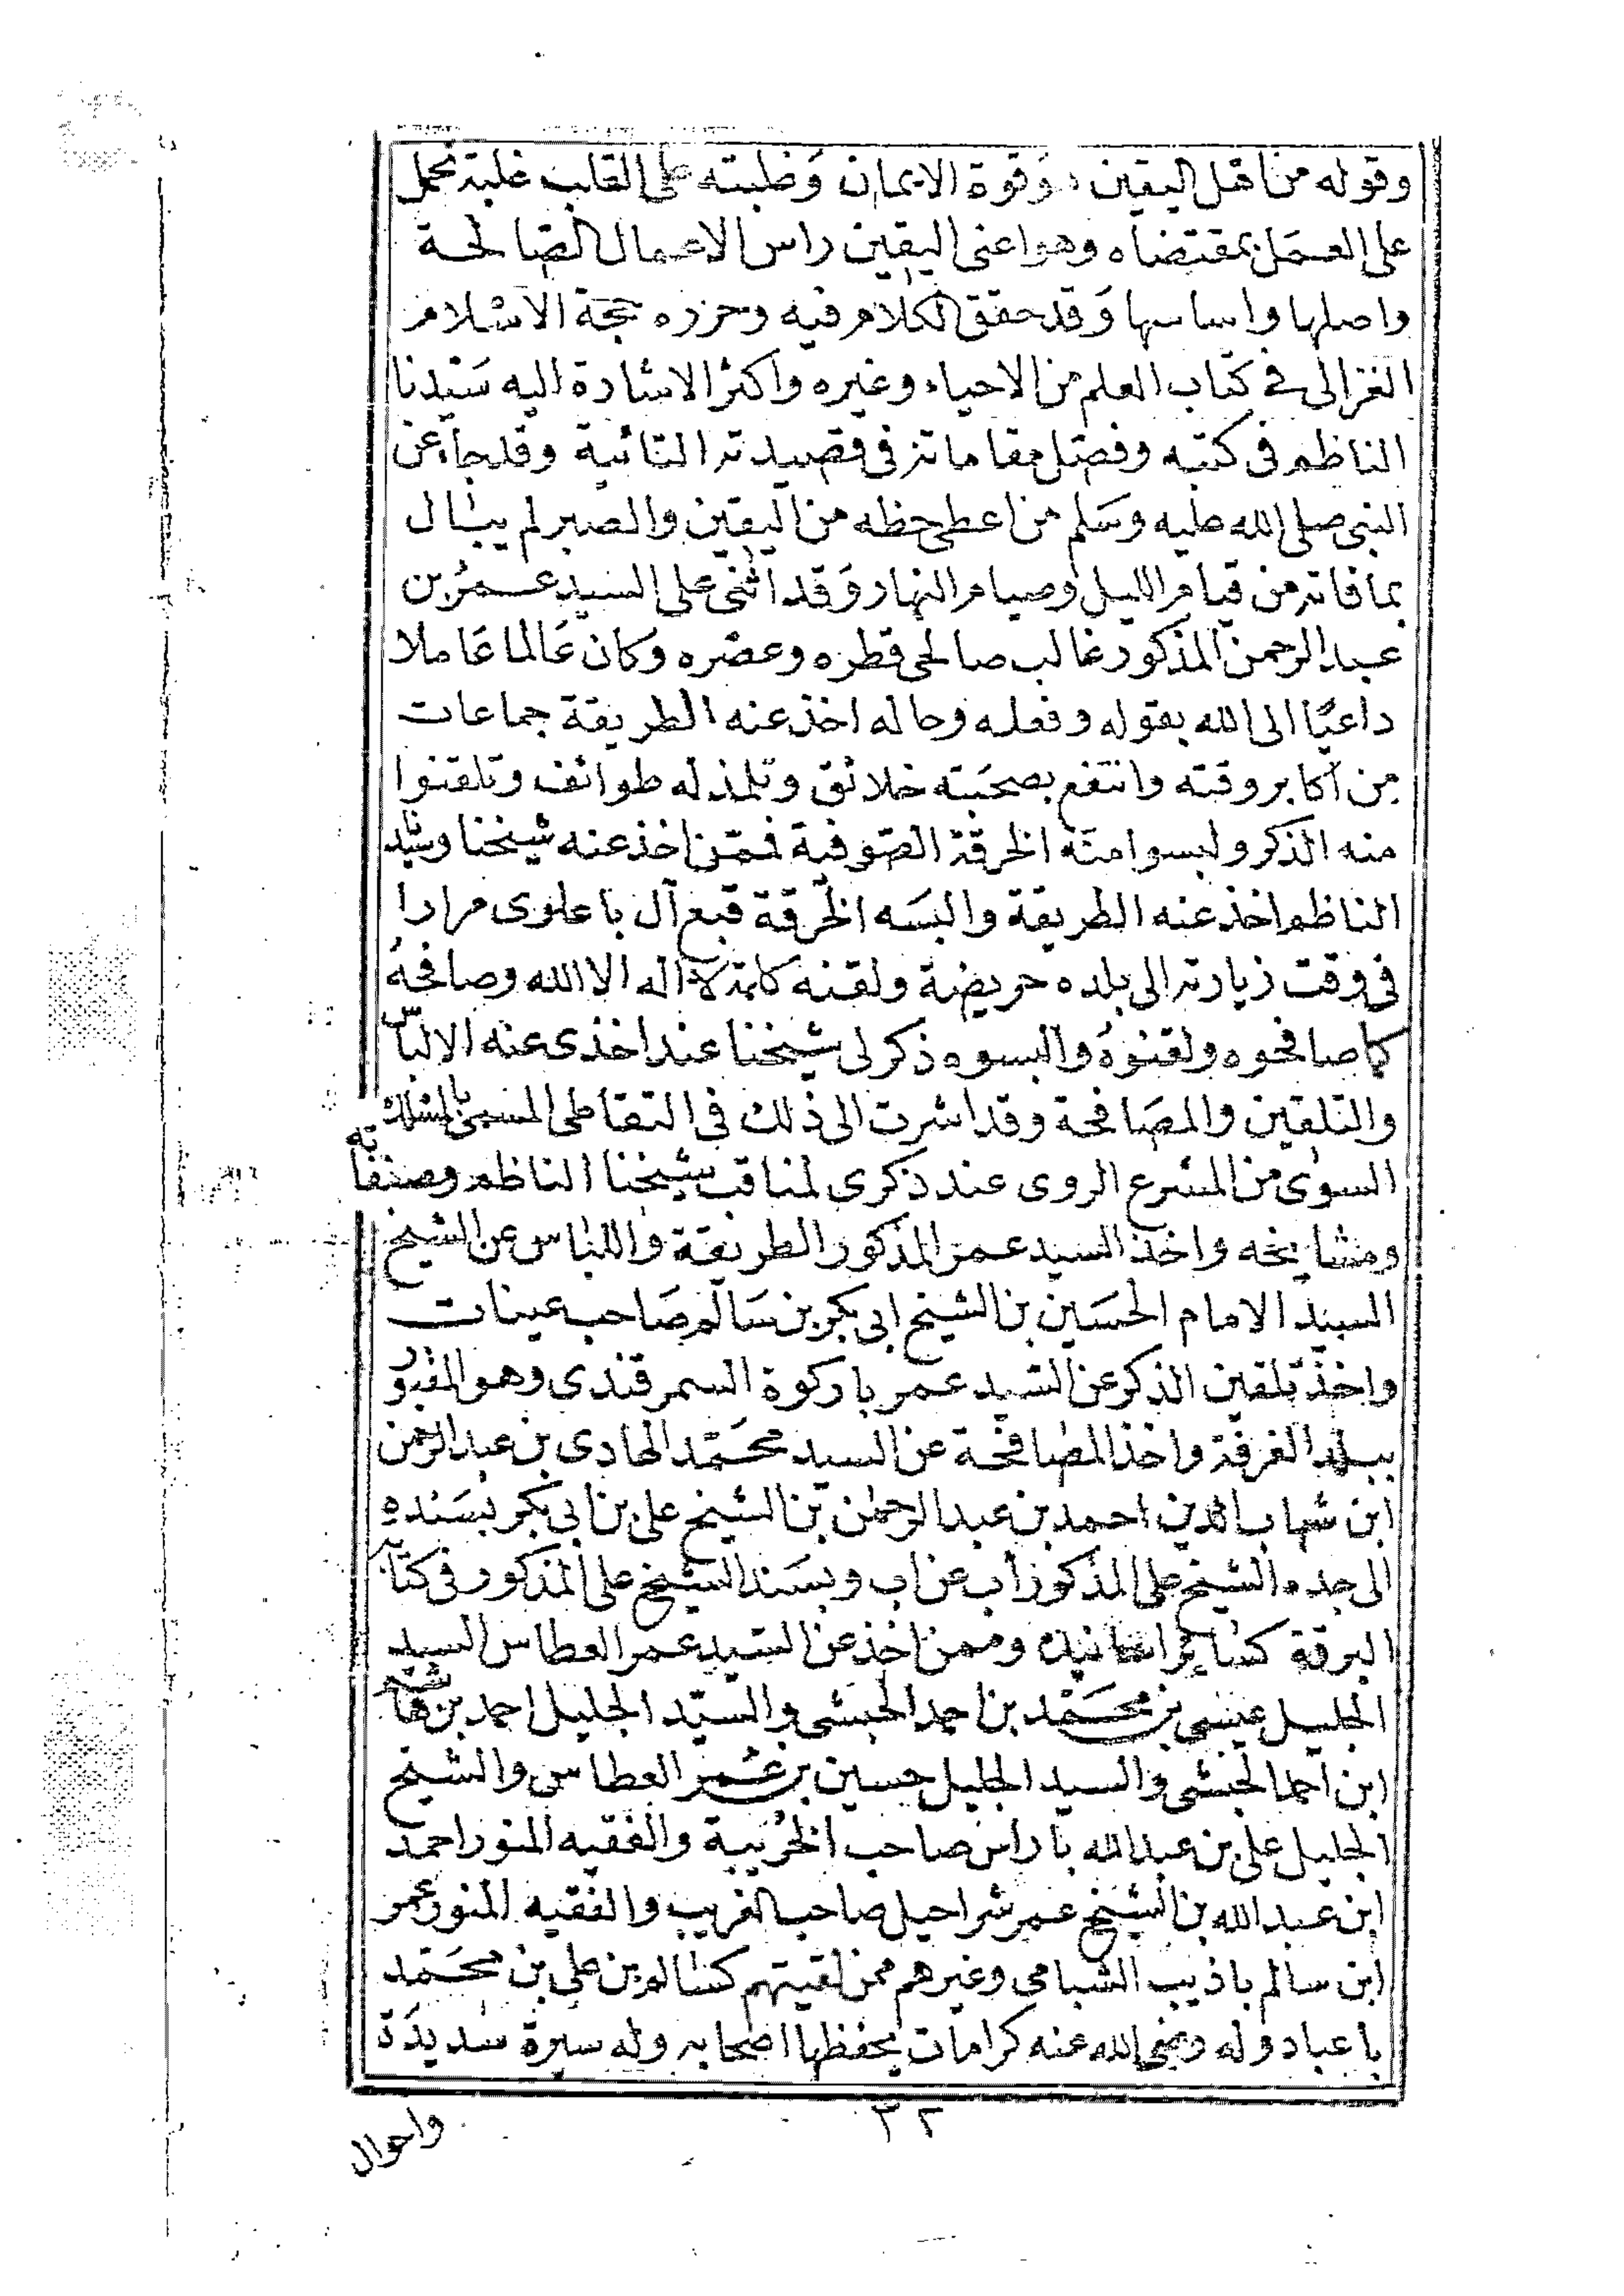 وقوله من اهل اليقين هو قوة الايمان وَغلبته على القلب غلبة تحمل
على العمَل بمقتضاه وهو اعنى اليقين راس الاعمال الصّالحة
واصلها واساسها وَقد حقق الكلام فيه وحرره حجة الاسْلام
الغزالى فى كتاب العلم من الاحياء وغيره واكثر الاشارة اليه سَيّدنا
الناظم فى كتبه وفصّل مقاماته فى قصيدته التائية وقد جآء عن
النبى صلى الله عليه وسَلم من اعطى حظه من اليقين والصبر لم يبال
بما فاته من قيام الليل وصيام النهار وَقد اثنى على السيد عمرُ بن
عبد الرحمن المذكور غالب صالحى قطره وعصْره وَكان عَالما عَاملا
داعيًا الى الله بقوله وفعله وحاله اخذ عنه الطريقة جماعات
من اكابر وقته وانتفع بصحبَته خلائق وتلمذ له طوائف وتلقنوا
منه الذكر ولبسوا منه الخرقة الصّوفية فمّمن اخذ عنه شيخنا وسَيّد
الناظم اخذ عنه الطريقة والبسَه الخرقة قبع آل با علوى مرارا
فى وقت زيارته الى بلده حريضة ولقنه كلمة لا اله الا الله وصافحهُ
كما صافحوه ولقنوهُ والبسوه ذكر لى شيخنا عند اخذى عنه الالباس
والتلقين والمصَافحة وقد اشرت الى ذلك فى التقاطى المسمى بالمسْلك
السوى من المشرع الروى عند ذكرى لمناقب شيخنا الناظم وصنفاته
ومشايخه واخذ السيد عمر المذكور الطريقة واللباس عن الشيخ
السيّد الامام الحسَين بن الشيخ ابى بكر بن سَالم صَاحب عينات
واخذ تلقين الذكر عن السّيد عمر باركوة السمرقندى وهو المقبور
ببلد الغرفة واخذ المصَافحة عن السيد محَمّد الهادى بن عبد الرحمن
ابن شهاب الدين احمد بن عبد الرحمٰن بن الشيخ على بن ابى بكر بسَنده
الى جده الشيخ على المذكور أب عن اب وبسَند الشيخ على المذكور فى كتابه
البرقة كسَاير اسَانيده وممن اخذ عن السّيد عمر العطاس السيد
الجليل عيسى بن محَمّد بن احمد الحبشى والسّيد الجليل احمد بن هاشم
ابن احمد الحبشى والسيد الجليل حسين بن عمر العطاس والشيخ
الجليل على بن عبد الله با راس صاحب الخُريبة والفقيه المنور احمد
ابن عبد الله بن الشيخ عمر شراحيل صاحب الغريب والفقيه المنور عمر
ابن سالم با ذيب الشبامى وغيرهم ممن لقيتهم كسَالم بن على بن محَمّد
با عباد وله رضى الله عنه كرامات يحفظها اصحابه وله سيرة سديدَة
٣٢
واحوال